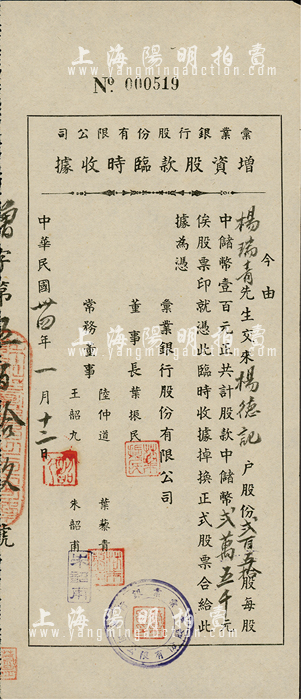 上海陽明拍賣
www.yangmingauction.com
№ 000519
彙業銀行股份有限公司
增資股款臨時收據
今由
楊瑞青先生交來楊德記戶股份貳百五拾股每股
中儲幣壹百元正共計股款中儲幣貳萬五千元
俟股票印就憑此臨時收據掉換正式股票合給此
據為憑
彙業銀行股份有限公司
董事長 葉振民
常務董事 陸仲道 葉藜青
王韶九 朱韶甫
中華民國卅四年一月十二日
增字第五百拾玖號
朱韶甫
上海陽明拍賣
www.yangmingauction.com